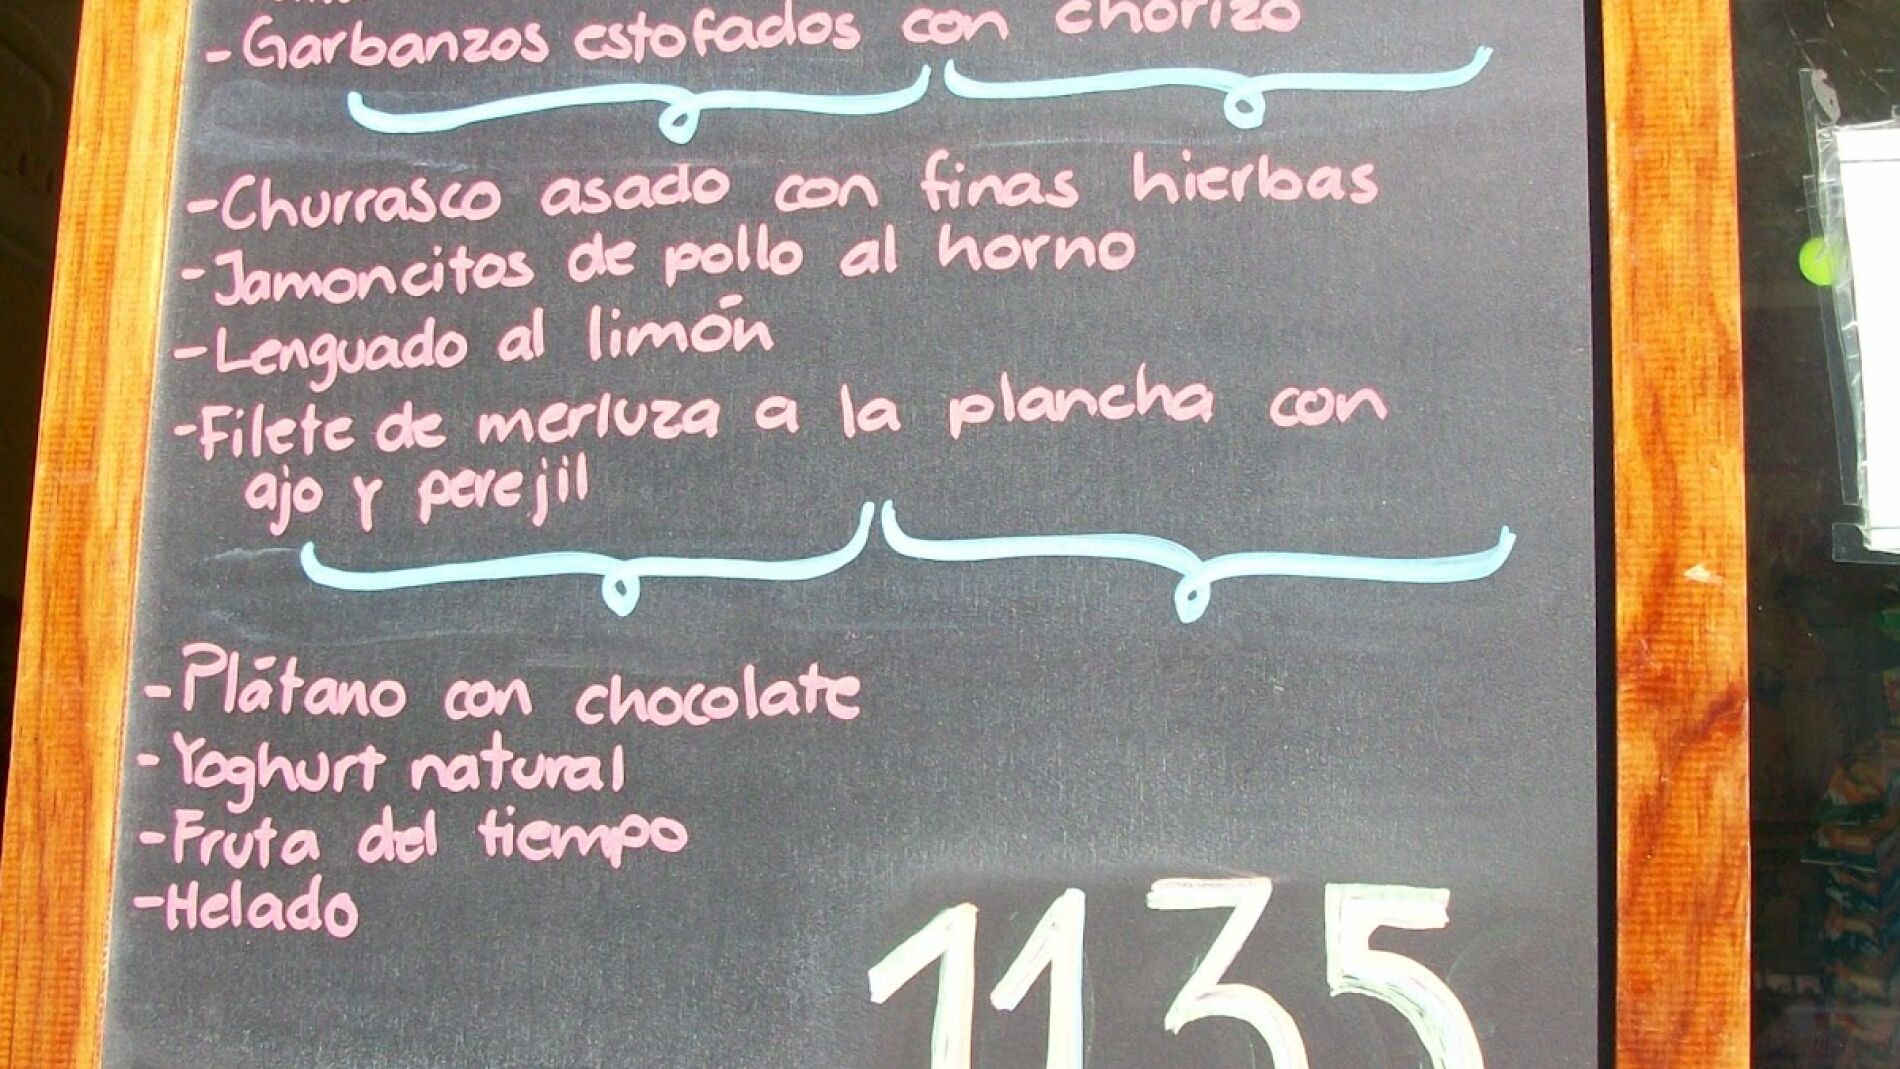 - Garbanzos estofados con chorizo
- Churrasco asado con finas hierbas
- Jamoncitos de pollo al horno
- Lenguado al limón
- Filete de merluza a la plancha con
ajo y perejil
- Plátano con chocolate
- Yoghurt natural
- Fruta del tiempo
- Helado
1135